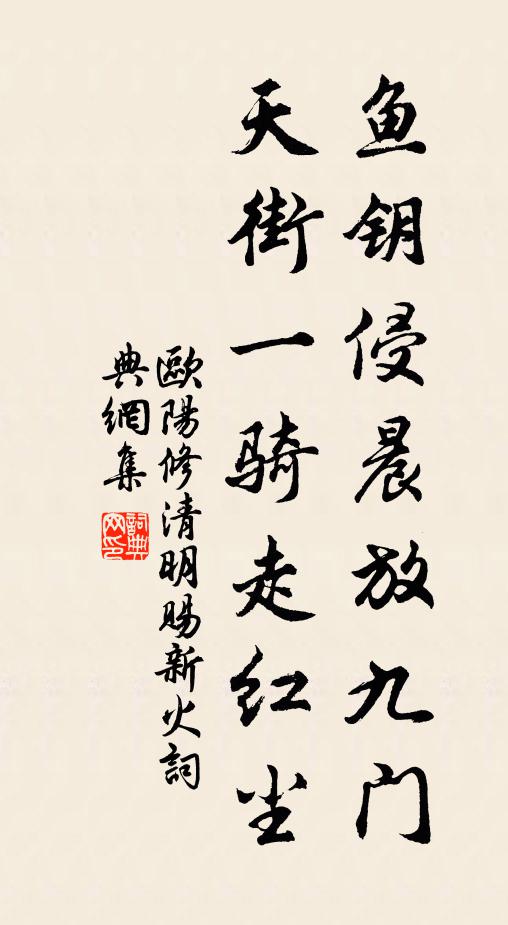 鱼钥侵晨放九门
天街一骑走红尘
歐陽修清明賜新火詞
典網集
詞典
网印